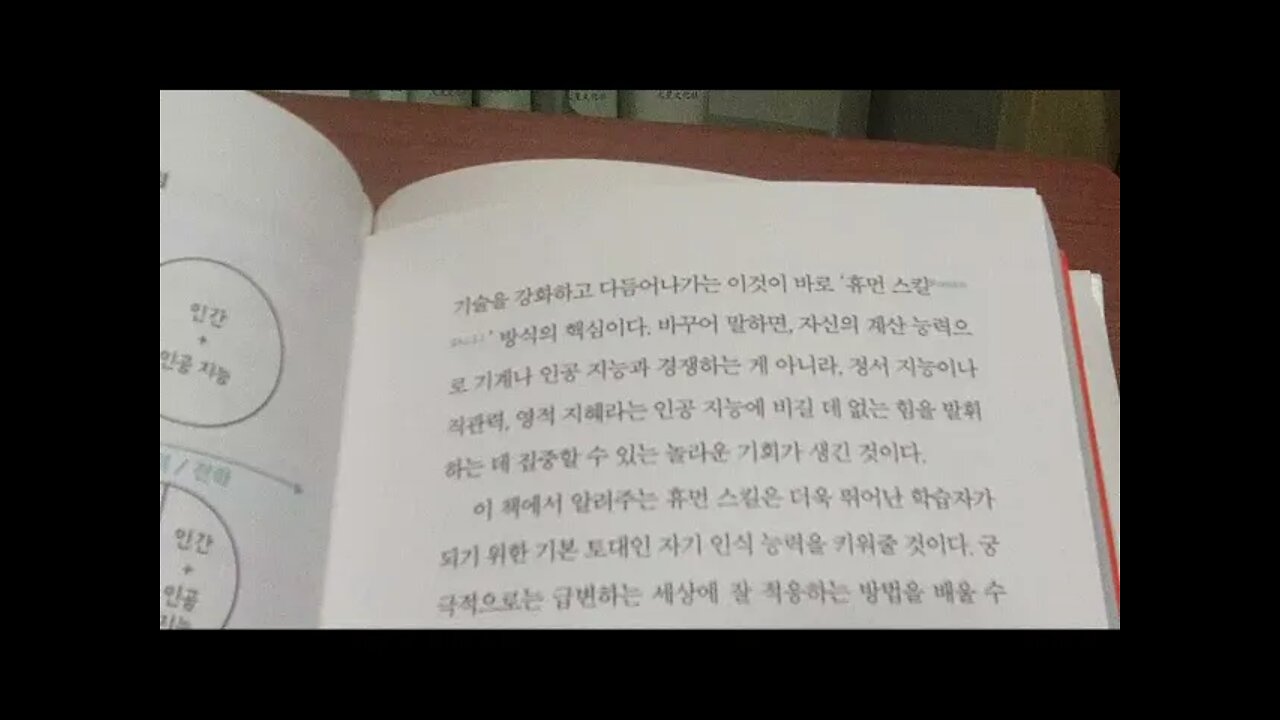 인간
+
인공 지능
/ 전략
인간
+
인공
기술을 강화하고 다듬어나가는 이것이 바로 '휴먼 스킬
' 방식의 핵심이다. 바꾸어 말하면, 자신의 계산 능력으
로 기계나 인공 지능과 경쟁하는 게 아니라, 정서 지능이나
직관력, 영적 지혜라는 인공 지능에 비길 데 없는 힘을 발휘
하는 데 집중할 수 있는 놀라운 기회가 생긴 것이다.
이 책에서 알려주는 휴먼 스킬은 더욱 뛰어난 학습자가
되기 위한 기본 토대인 자기 인식 능력을 키워줄 것이다. 궁
극적으로는 급변하는 세상에 잘 적응하는 방법을 배울 수